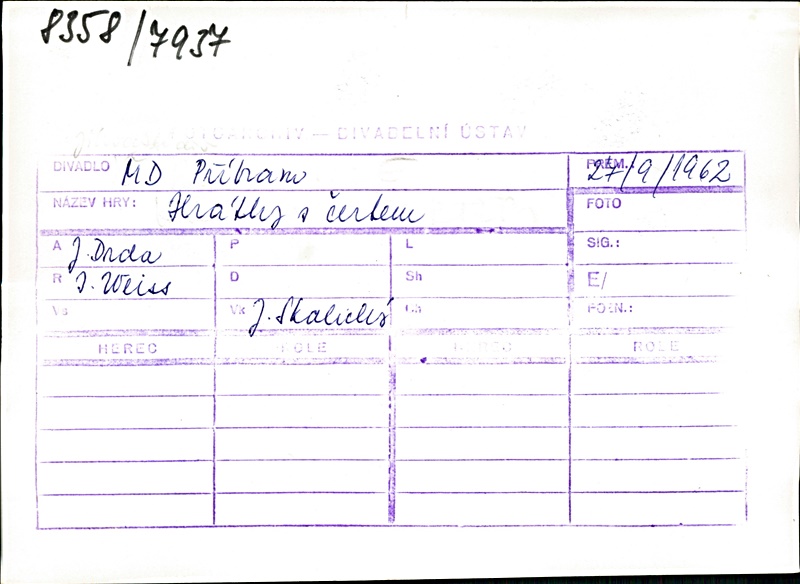 8358/7937
FOTOARCHIV — DIVADELNÍ ÚSTAV
DIVADLO MD Příbram PREM. 27/9/1962
NÁZEV HRY: Hrátky s čertem FOTO
A J. Drda P L SIG.:
R J. Weiss D Sh E/
Vs Vk J. Skalický Ch POZN.:
HEREC ROLE HEREC ROLE